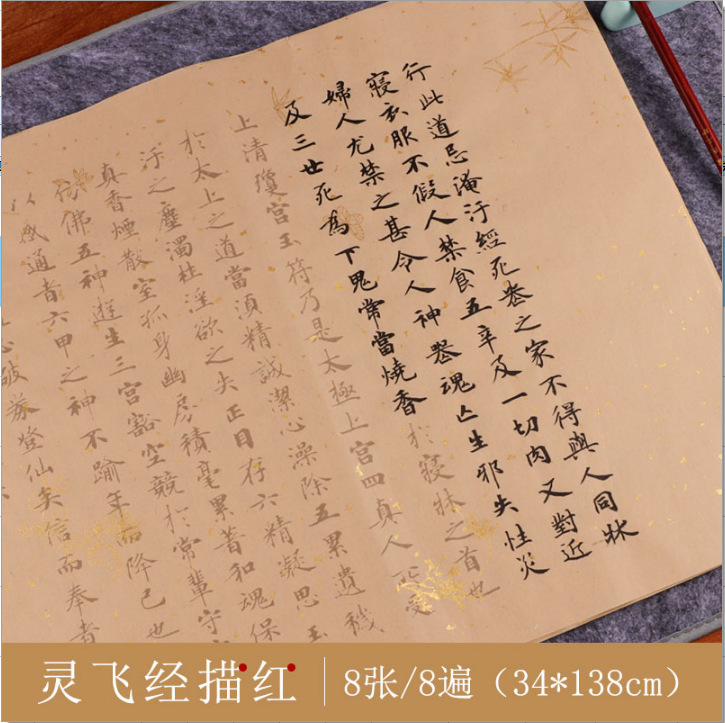 行此道忌淹汙經死喪之家不得與人同牀
寢衣服不假人禁食五辛及一切肉又對近
婦人尤禁之甚令人神喪魂亡生邪失性災
及三世死為下鬼常當燒香於寢牀之首也
上清瓊宮玉符乃是太極上宮四真人所受
於太上之道當須精誠潔心澡除五累遺穢
汙之塵濁杜淫欲之失正目存六精凝思玉
真香煙散室孤身幽房積毫累著和魂保
仿佛五神遊生三宮豁空競於常輩守
以感通者六甲之神不踰年而降己也
破券登仙矣信而奉者
灵飞经描红
8张/8遍（34*138cm）